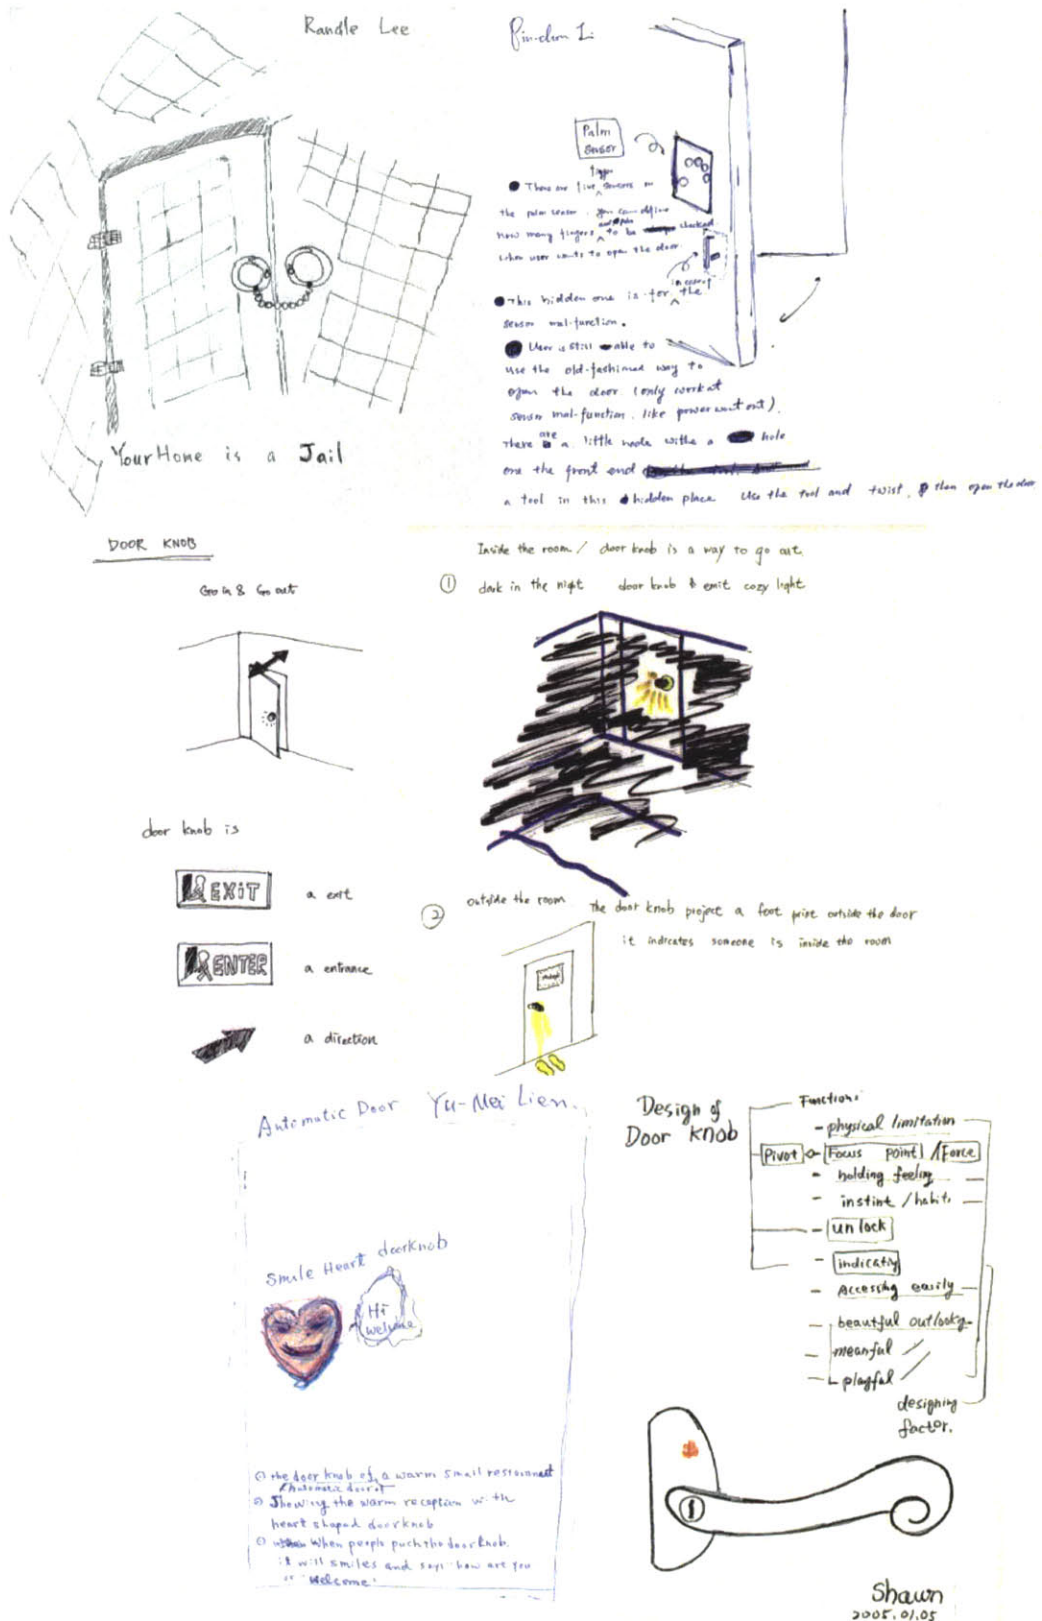 Randle Lee
Your Home is a Jail
Pin-chun Li
Palm
sensor
finger
There are five sensors on
the palm sensor. you can define
how many fingers to be checked
when user wants to open the door.
in case of
This hidden one is for the
sensor mal-function.
User is still able to
use the old-fashioned way to
open the door. (only work at
sensor mal-function, like power went out).
There are a little node withe a hole
one the front end
a tool in this hidden place Use the tool and twist, then open the door
DOOR KNOB
Go in & Go out
door knob is
EXIT a exit
ENTER a entrance
a direction
Inside the room / door knob is a way to go out
① dark in the night door knob & emit cozy light
② outside the room The door knob project a foot print outside the door
it indicates someone is inside the room
Automatic Door Yu-Mei Lien.
Smile Heart doorknob
Hi
welcome
the door knob of a warm small restaurant
Showing the warm reception with
heart shaped doorknob
When people puch the doorknob.
it will smiles and says how are you
or "welcome"
Design of
Door Knob
Functions
- physical limitation
Pivot - Focus point / Force
- holding feeling
- instint / habits
- unlock
- indicatiy
- Accessing easily
- beautful outlooky
- meanful
- playful
designing
factor.
1
Shawn
2005.01.05